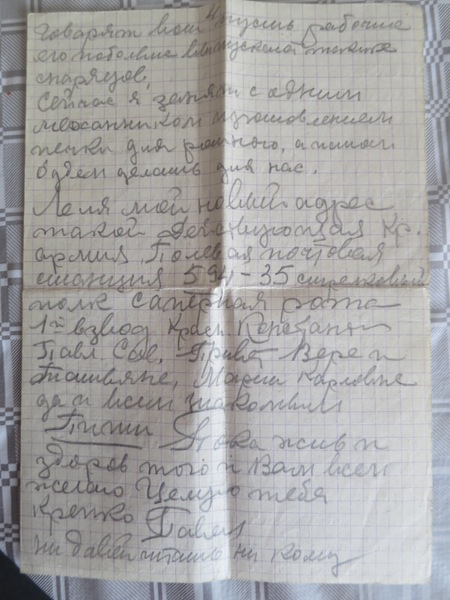 говорят вси пусть рабочие
его побольше выпускают
снарядов,
Сейчас я занят с одним
механиком изготовлением
печки для ротного, а потом
будем делать для нас.
Леля мой новый адрес
такой Действующая Кр.
армия, Полевая почтовая
станция 594-35 стрелковый
полк саперная рота
1й взвод Красн.
Павл. Сав. Привет Вере и
Татьяне, Марии Карловне
да и всем знакомым
Пиши Пока жив и
здоров того и Вам всем
желаю Целую тебя
Крепко Павел
ни давай читать ни кому